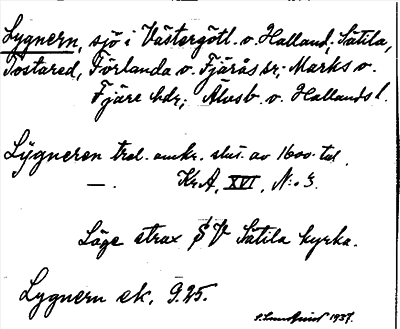 Lygnern, sjö i Västergötl. o. Halland; Sätila,
Tostared, Förlanda o. Fjärås sr; Marks o.
Fjäre hdr; Älvsb. o. Hallands l.
Lÿgneren trol. omkr. slut. av 1600-tal.
— . Kr.A, XVI, N:o 3.
Läge strax SV Sätila kyrka.
Lygnern ek. 9.25.
1937.